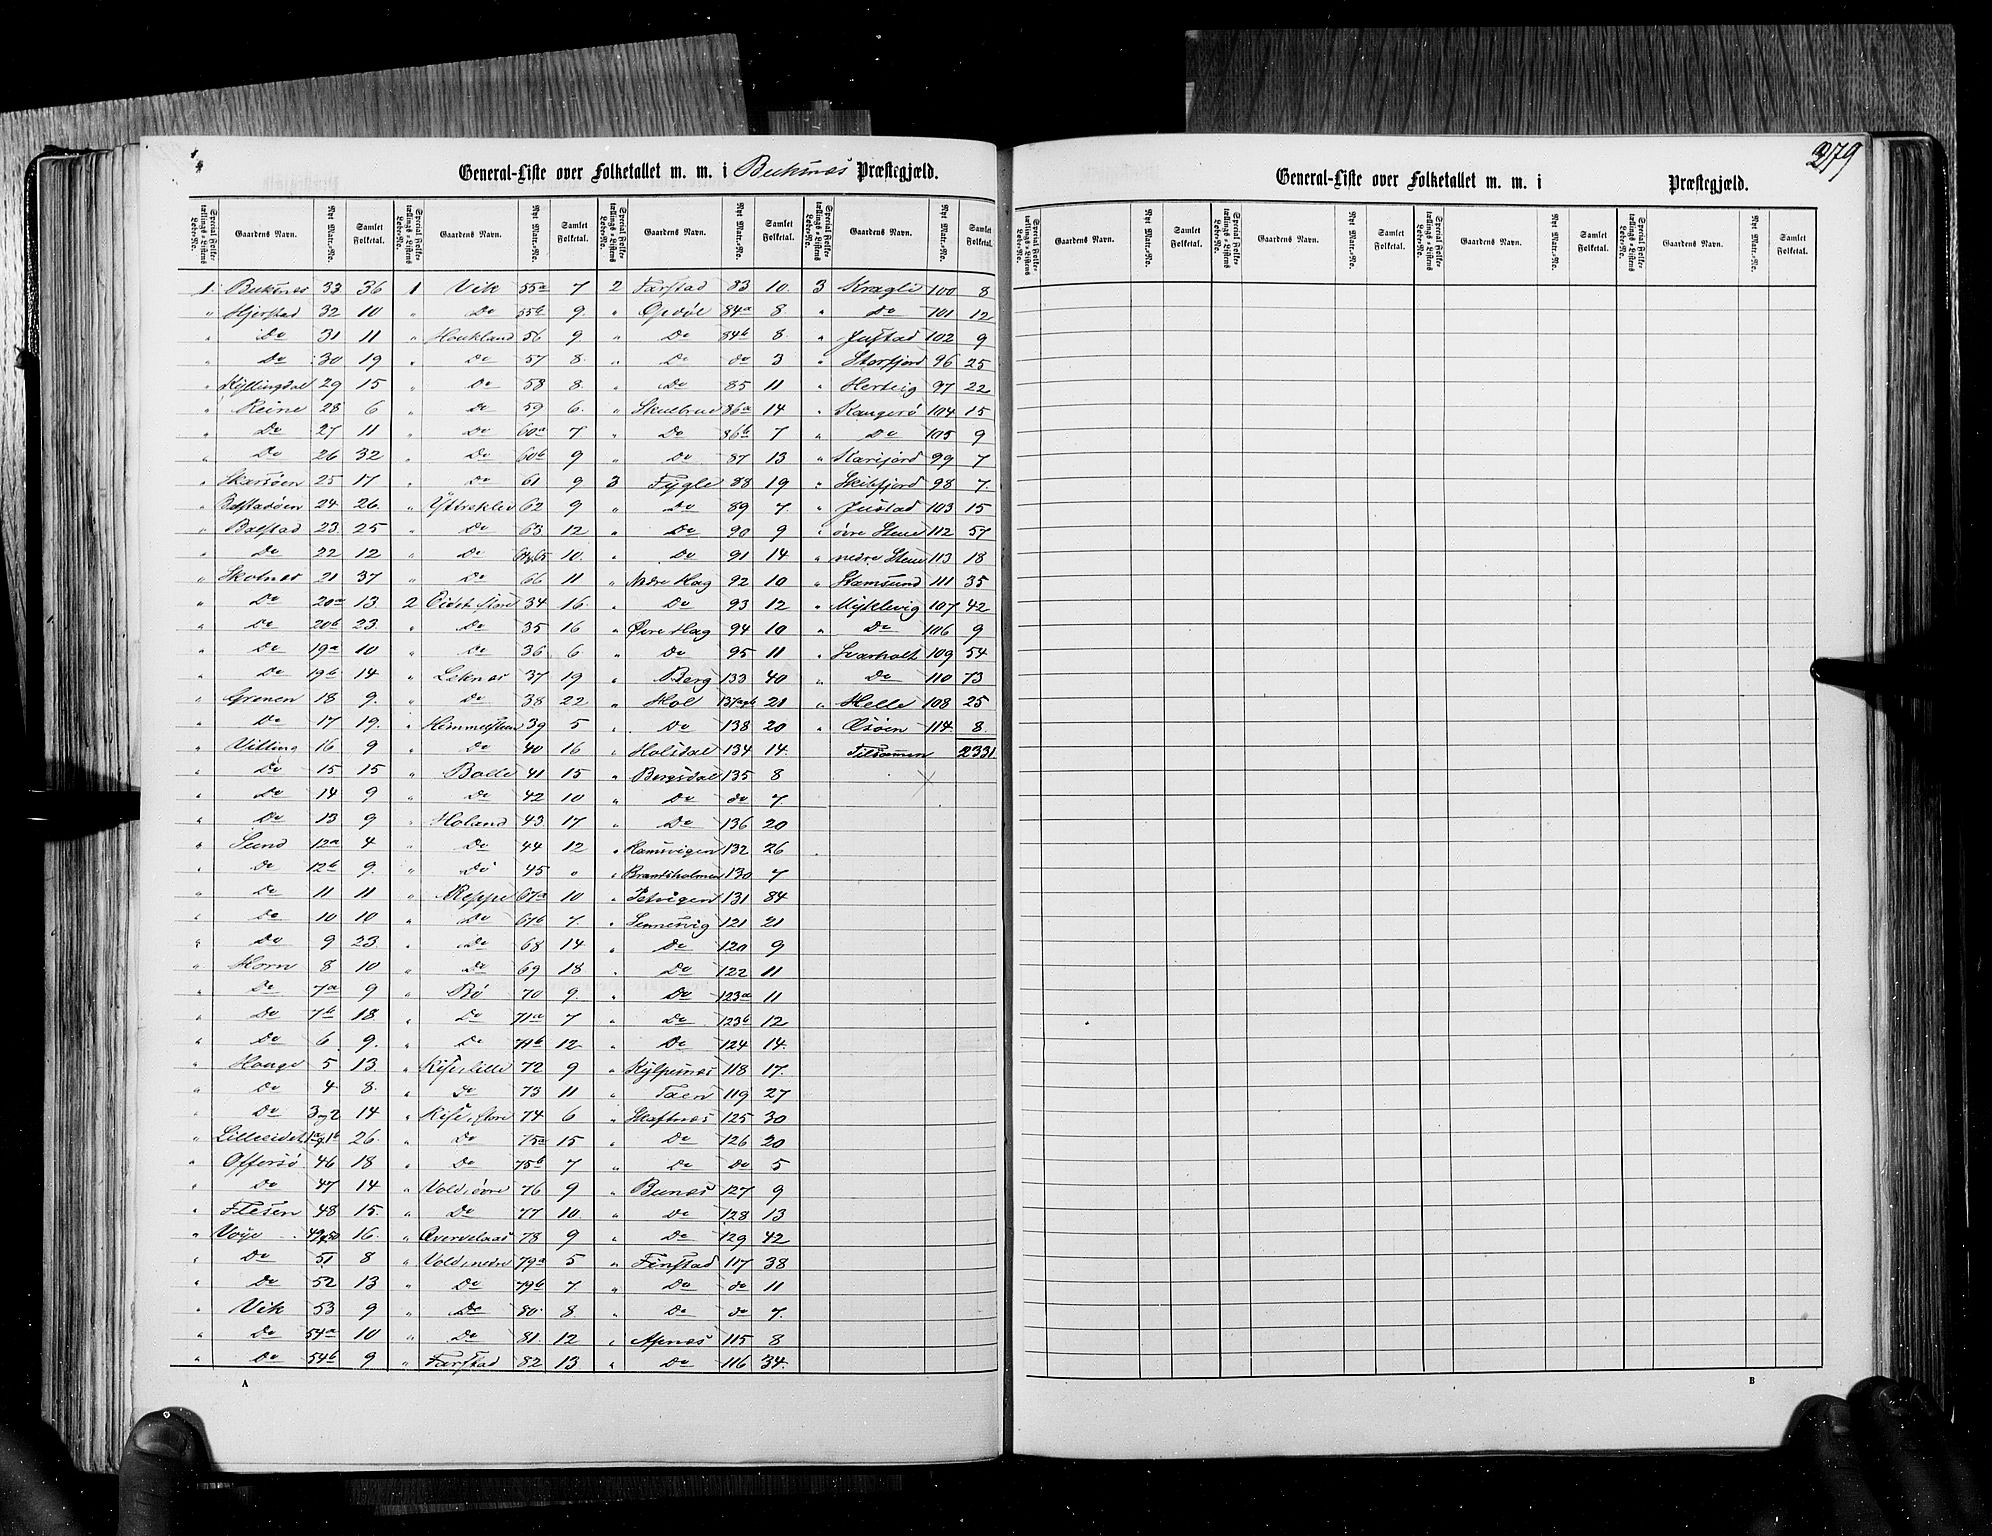 279
General-Liste over Folketallet m. m. i Buksnæs Præstegjæld.
Special Folketællings-Listens Løbe-No. Gaardens Navn. Nyt Matr.-No. Samlet Folketal. Special Folketællings-Listens Løbe-No. Gaardens Navn. Nyt Matr.-No. Samlet Folketal. Special Folketællings-Listens Løbe-No. Gaardens Navn. Nyt Matr.-No. Samlet Folketal. Special Folketællings-Listens Løbe-No. Gaardens Navn. Nyt Matr.-No. Samlet Folketal.
1. Buksnes 33 36 1 Vik 55a 7 2 Farstad 83 10. 3 Kragli 100 8
" Hjerstad 32 10 " Do 55b 9. " Opdøl 84a 8. " Do 101 12
" Do 31 11 " Houkland 56 9 " Do 84b 8. " Justad 102 9
" Do 30 19 " Do 57 8. " Do do 3 " Storfjord 96 25
" Kyllingdal 29 15 " Do 58 8. " Do 85 11 " Hertvig 97 22
" Reine 28 6 " Do 59 6. " Skulbru 86a 14 " Kangerø 104 15
" Do 27 11 " Do 60a 7 " Do 86b 7 " Do 105 9
" Do 26 32 " Do 60b 9 " Do 87 13 " Karijord 99 7
" Skarsøen 25 17 " Do 61 9 3 Fygle 88 19 " Skibfjord 98 7.
" Balstadøen 24 26. " Yttreklev 62 9 " Do 89 7. " Justad 103 15
" Balstad 23 25 " Do 63 12 " Do 90 9 " øvre Stene 112 57
" Do 22 12 " Do 64,65 10. " Do 91 14 " nedre Stene 113 18
" Skotnes 21 37 " Do 66 11 " Nedre Hag 92 10 " Stamsund 111 35
" Do 20a 13. 2 Eidet store 34 16. " Do 93 12 " Myklevig 107 42
" Do 20b 23. " Do 35 16 " Øvre Hag 94 10 " Do 106 9
" Do 19a 10 " Do 36 6 " Do 95 11 " Svarholt 109 54
" Do 19b 14 " Leknes 37 19 " Berg 133 40 " Do 110 73
" Grønen 18 9. " Do 38 22 " Hol 137a,b 21 " Helle 108 25
" Do 17 19. " Himmelsteen 39 5 " Do 138 20 " Æsøen 114 8.
" Vitting 16 9 " Do 40 16 " Holsdal 134 14. Tilsammen 2331
" Do 15 15 " Bolle 41 15 " Bergsdal 135 8
" Do 14 9 " Do 42 10 " Do do 7
" Do 13 9 " Holand 43 17 " Do 136 20
" Sund 12a 4 " Do 44 12 " Ramsvigen 132 26
" Do 12b 9. " Do 45 " " Brandsholmen 130 7
" Do 11 11 " Reppe 67a 10 " Petvigen 131 84
" Do 10 10 " Do 67b 7. " Sennesvig 121 21
" Do 9 23 " Do 68 14 " Do 120 9
" Horn 8 10 " Do 69 18 " Do 122 11
" Do 7a 9 " Bø 70 9. " Do 123a 11
" Do 7b 18. " Do 71a 7 " Do 123b 12
" Do 6 9. " Do 71b 12. " Do 124 14.
" Houge 5 13 " Rise, lille 72 9 " Kylpesnæs 118 17.
" Do 4 8. " Do 73 11 " Taen 119 27
" Do 3og2 14 " Rise, store 74 6 " Skaftnæs 125 30
" Lilleeidet 1a,1b 26. " Do 75a 15 " Do 126 20
" Offersø 46 18 " Do 75b 7 " Do do 5
" Do 47 14 " Vold, øvre 76 9 " Bunæs 127 9
" Flesen 48 15. " Do 77 10. " Do 128 13
" Voye 49,50 16. " Ævervelaas 78 9 " Do 129 42
" Do 51 8 " Vold, nedre 79a 5 " Finstad 117 38
" Do 52 13 " Do 79b 7. " Do do 11
" Vik 53 9 " Do 80 8. " Do do 7.
" Do 54a 10 " Do 81 12 " Apnæs 115 8
" Do 54b 9 " Farstad 82 13 " Do 116 34.
A
General-Liste over Folketallet m. m. i Præstegjæld.
Special Folketællings-Listens Løbe-No. Gaardens Navn. Nyt Matr.-No. Samlet Folketal. Special Folketællings-Listens Løbe-No. Gaardens Navn. Nyt Matr.-No. Samlet Folketal. Special Folketællings-Listens Løbe-No. Gaardens Navn. Nyt Matr.-No. Samlet Folketal. Special Folketællings-Listens Løbe-No. Gaardens Navn. Nyt Matr.-No. Samlet Folketal.
B